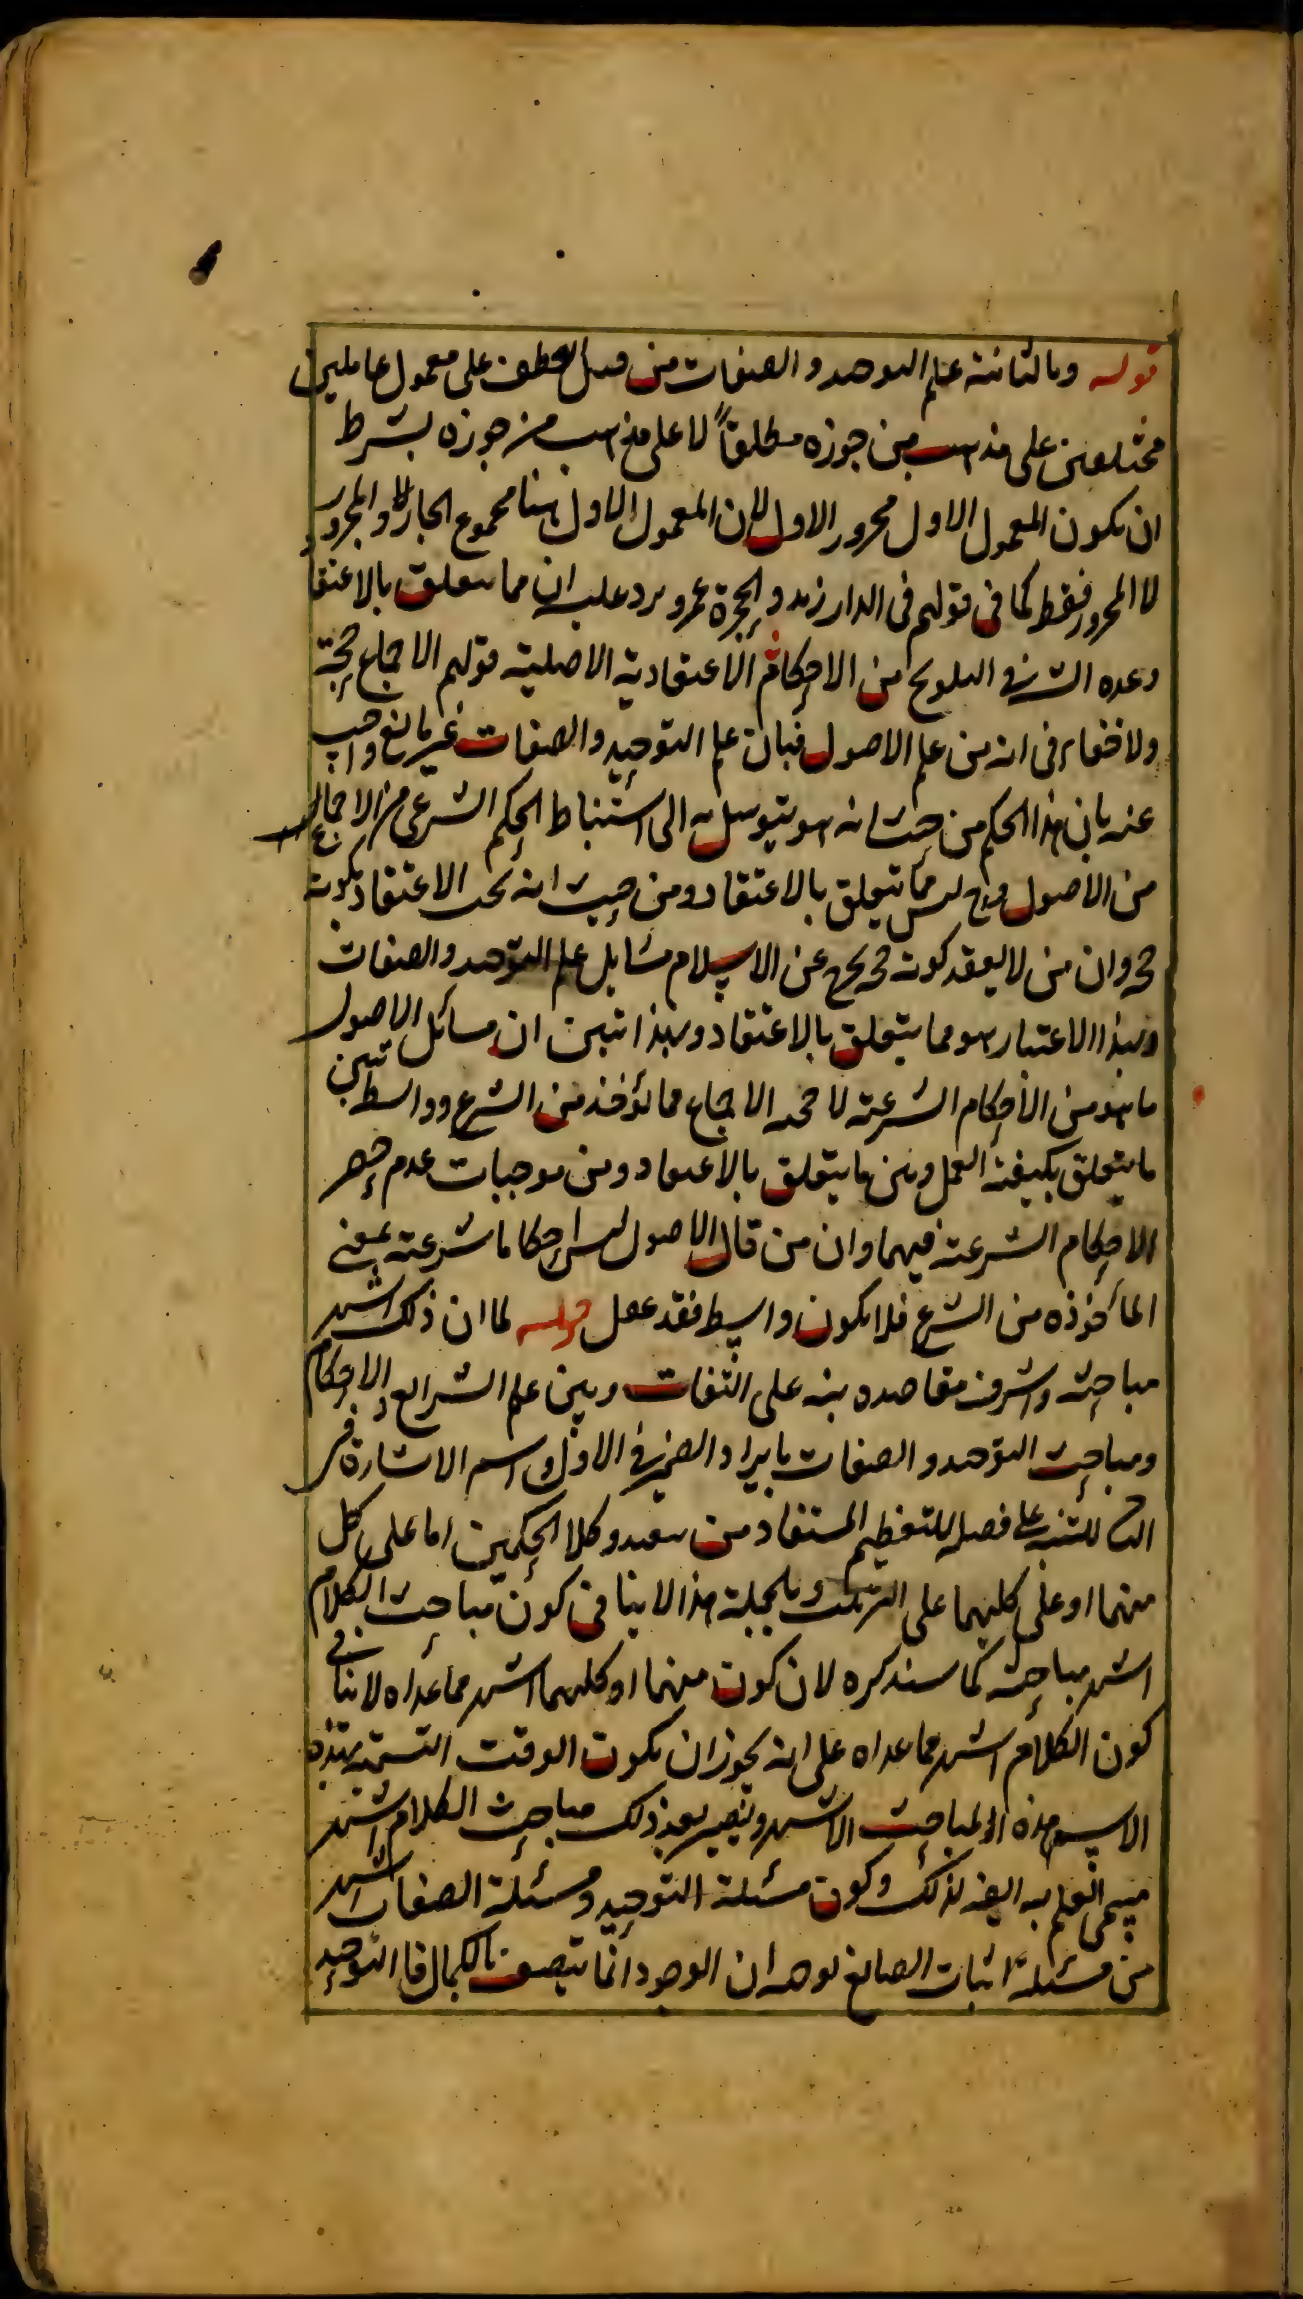 قوله وبالثانية علم التوحيد والصفات من قبيل العطف على معمول عاملين
مختلفين على مذهب من جوزه مطلقاً لا على مذهب من جوزه بشرط
ان يكون المعمول الاول مجرور الاول لان المعمول الاول ههنا مجموع الجار والمجرور
لا المجرور فقط كما فى قولهم فى الدار زيد والحجرة عمرو يرد عليه ان مما يتعلق بالاعتقا
وعده الش فى التلويح من الاحكام الاعتقادية الاصلية قولهم الاجماع حجة
ولا خفاء فى انه من علم الاصول فبان علم التوحيد والصفات غير مانع واجيب
عنه بان هذا الحكم من حيث انه هو يتوسل به الى استنباط الحكم الشرعى من الاجماع
من الاصول وح ليس مما يتعلق بالاعتقاد ومن حيث انه يجب الاعتقاد بكونه
حجة وان من لا يعتقد كونه حجة يخرج عن الاسلام مسايل علم التوحيد والصفات
وبهذا الاعتبار هو مما يتعلق بالاعتقاد وبهذا تبين ان مسائل الاصول
ما هو من الاحكام الشرعية لا حجية الاجماع مما يؤخذ من الشرع وواسط بين
ما يتعلق بكيفية العمل وبين ما يتعلق بالاعتقاد ومن موجبات عدم حصر
الاحكام الشرعية فيهما وان من قال الاصول ليس احكاما شرعية بمعنى
المأخوذه من الشرع فلا يكون واسط فقد غفل قوله لما ان ذلك اشهر
مباحثه واشرف مقاصده نبه على التفات وبين علم الشرايع والاحكام
ومباحث التوحيد والصفات بايراد الضمير فى الاول واسم الاشارة فى
الثا للتنبيه على فصله للتعظيم المستفاد من بعيد وكلا الحكمين اما على كل
منهما او على كليهما على التركيب وبالجملة هذا لا ينا فى كون مباحث الكلام
اشهر مباحثه كما سنذكره لان كون منهما او كليهما اشهر مما عداه لا ينافى
كون الكلام اشهر مما عداه على انه يجوز ان يكون الوقت التسمية بهذه
الاسم هذه المباحث الاشهر ويصير بعد ذلك مباحث الكلام اشهر
فيسمى العلم به ايضه لذلك وكون مسئلة التوحيد ومسئلة الصفات اشهر
من مسئلة اثبات الصانع لوحد ان الوجود انما يتصف بالكمال فا التوحيد